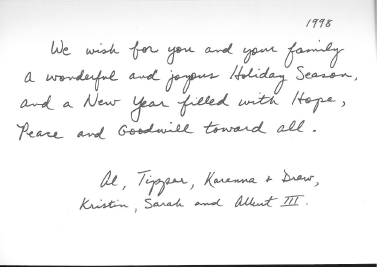 1998
We wish for you and your family
a wonderful and joyous Holiday Season,
and a New Year filled with Hope,
Peace and Goodwill toward all.
Al, Tipper, Karenna + Drew,
Kristin, Sarah and Albert III.